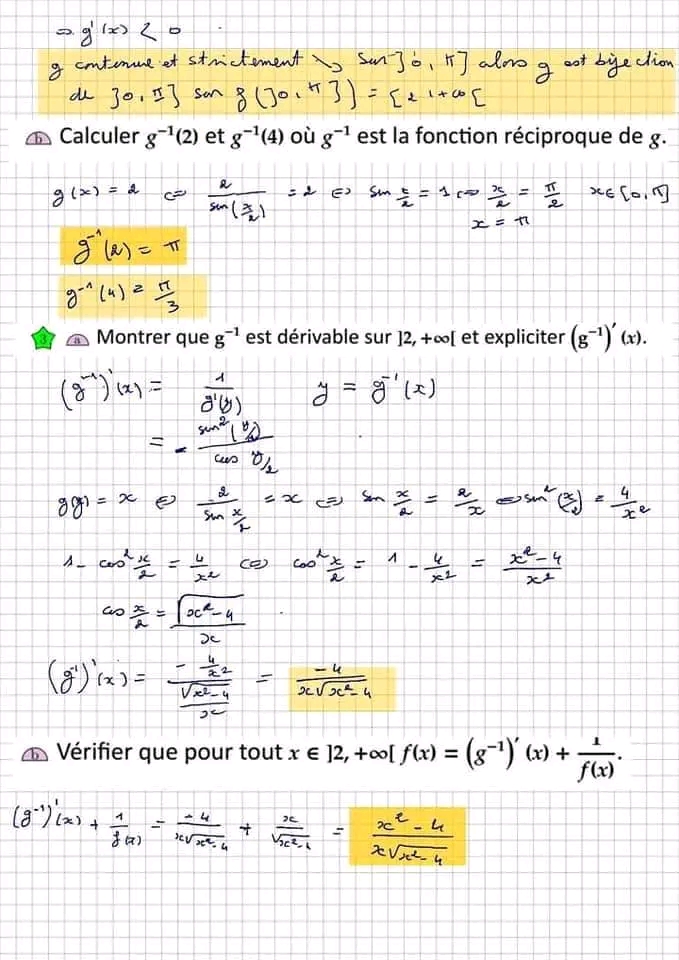 ⇒ g'(x) < 0
g continue et strictement ↘ sur ]0, π] alors g est bijection
de ]0, π] sur g(]0, π]) = [2, +∞[
b Calculer g⁻¹(2) et g⁻¹(4) où g⁻¹ est la fonction réciproque de g.
g(x) = 2 ⇔ 2/sin(x/2) = 2 ⇔ sin x/2 = 1 ⇔ x/2 = π/2 x ∈ [0, π]
x = π
g⁻¹(2) = π
g⁻¹(4) = π/3
3 a Montrer que g⁻¹ est dérivable sur ]2, +∞[ et expliciter (g⁻¹)′(x).
(g⁻¹)'(x) = 1/g'(y) y = g⁻¹(x)
= - sin²(y/2)/cos y/2
g(y) = x ⇔ 2/sin x/2 = x ⇔ sin x/2 = 2/x ⇔ sin²(x/2) = 4/x²
1 - cos² x/2 = 4/x² ⇔ cos² x/2 = 1 - 4/x² = x² - 4/x²
cos x/2 = √(x² - 4)/x
(g⁻¹)'(x) = (- 4/x²)/(√(x² - 4)/x) = -4/(x√(x² - 4))
b Vérifier que pour tout x ∈ ]2, +∞[ f(x) = (g⁻¹)′(x) + 1/f(x).
(g⁻¹)'(x) + 1/f(x) = -4/(x√(x² - 4)) + x/√(x² - 4) = (x² - 4)/(x√(x² - 4))